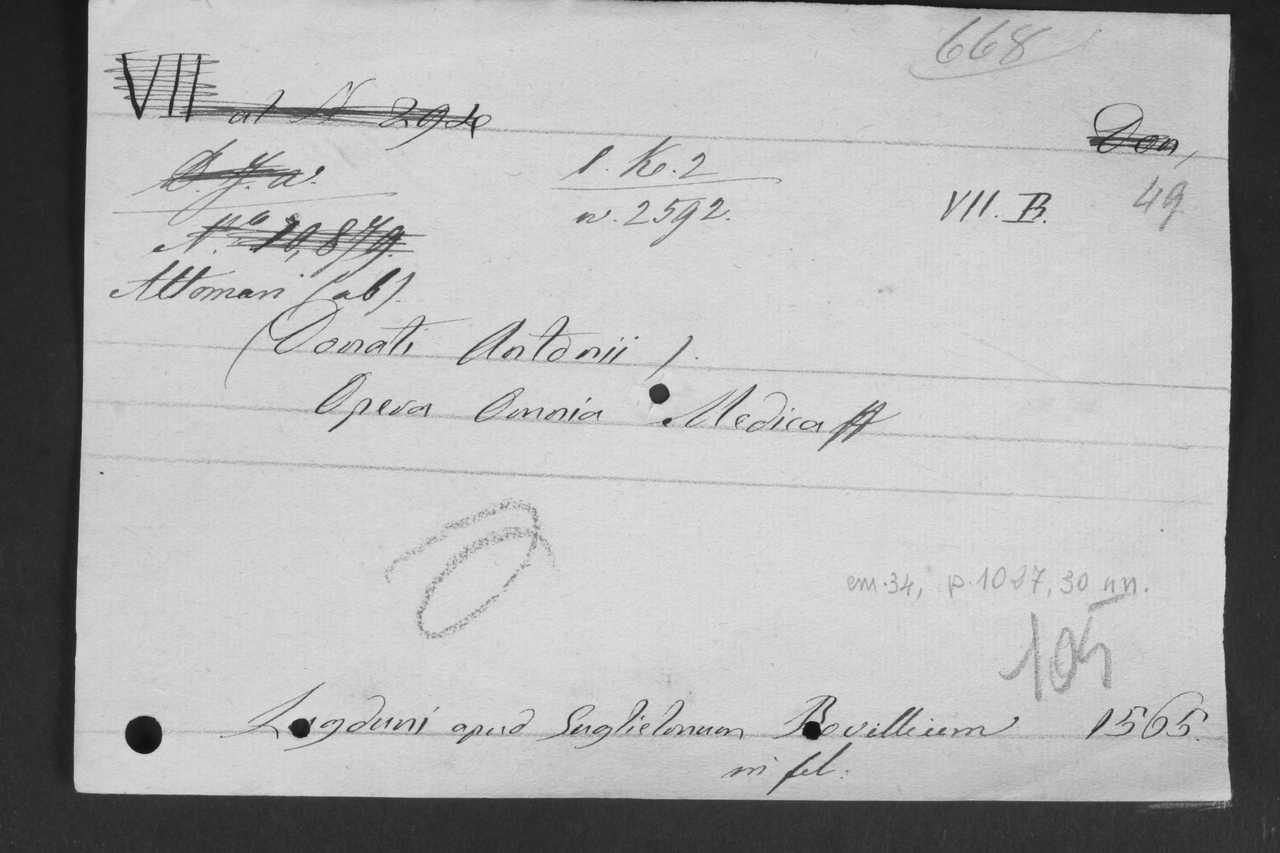 668
VII al N 294
Don,
D. J. a.
l. Ke. 2
n. 2592.
VII. B. 49
N.ro 10,879.
Altomari (ab).
(Donati Antonii).
Opera Omnia Medica
cm. 34, p. 1027, 30 nn.
105
Lugduni apud Guglielmum Rovillium 1565.
in fol.